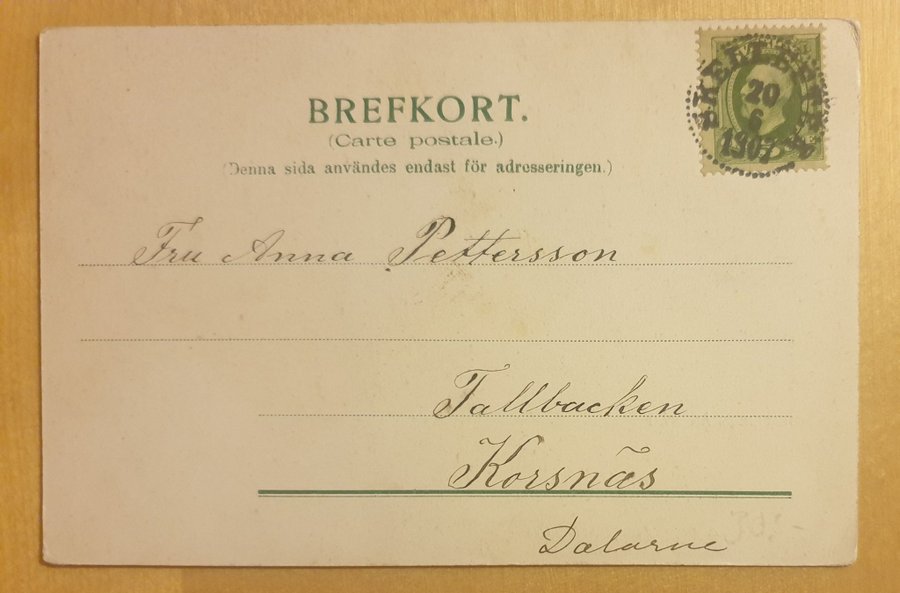 BREFKORT.
(Carte postale.)
(Denna sida användes endast för adresseringen.)
20
6
1907
Fru Anna Pettersson
Tallbacken
Korsnäs
Dalarne